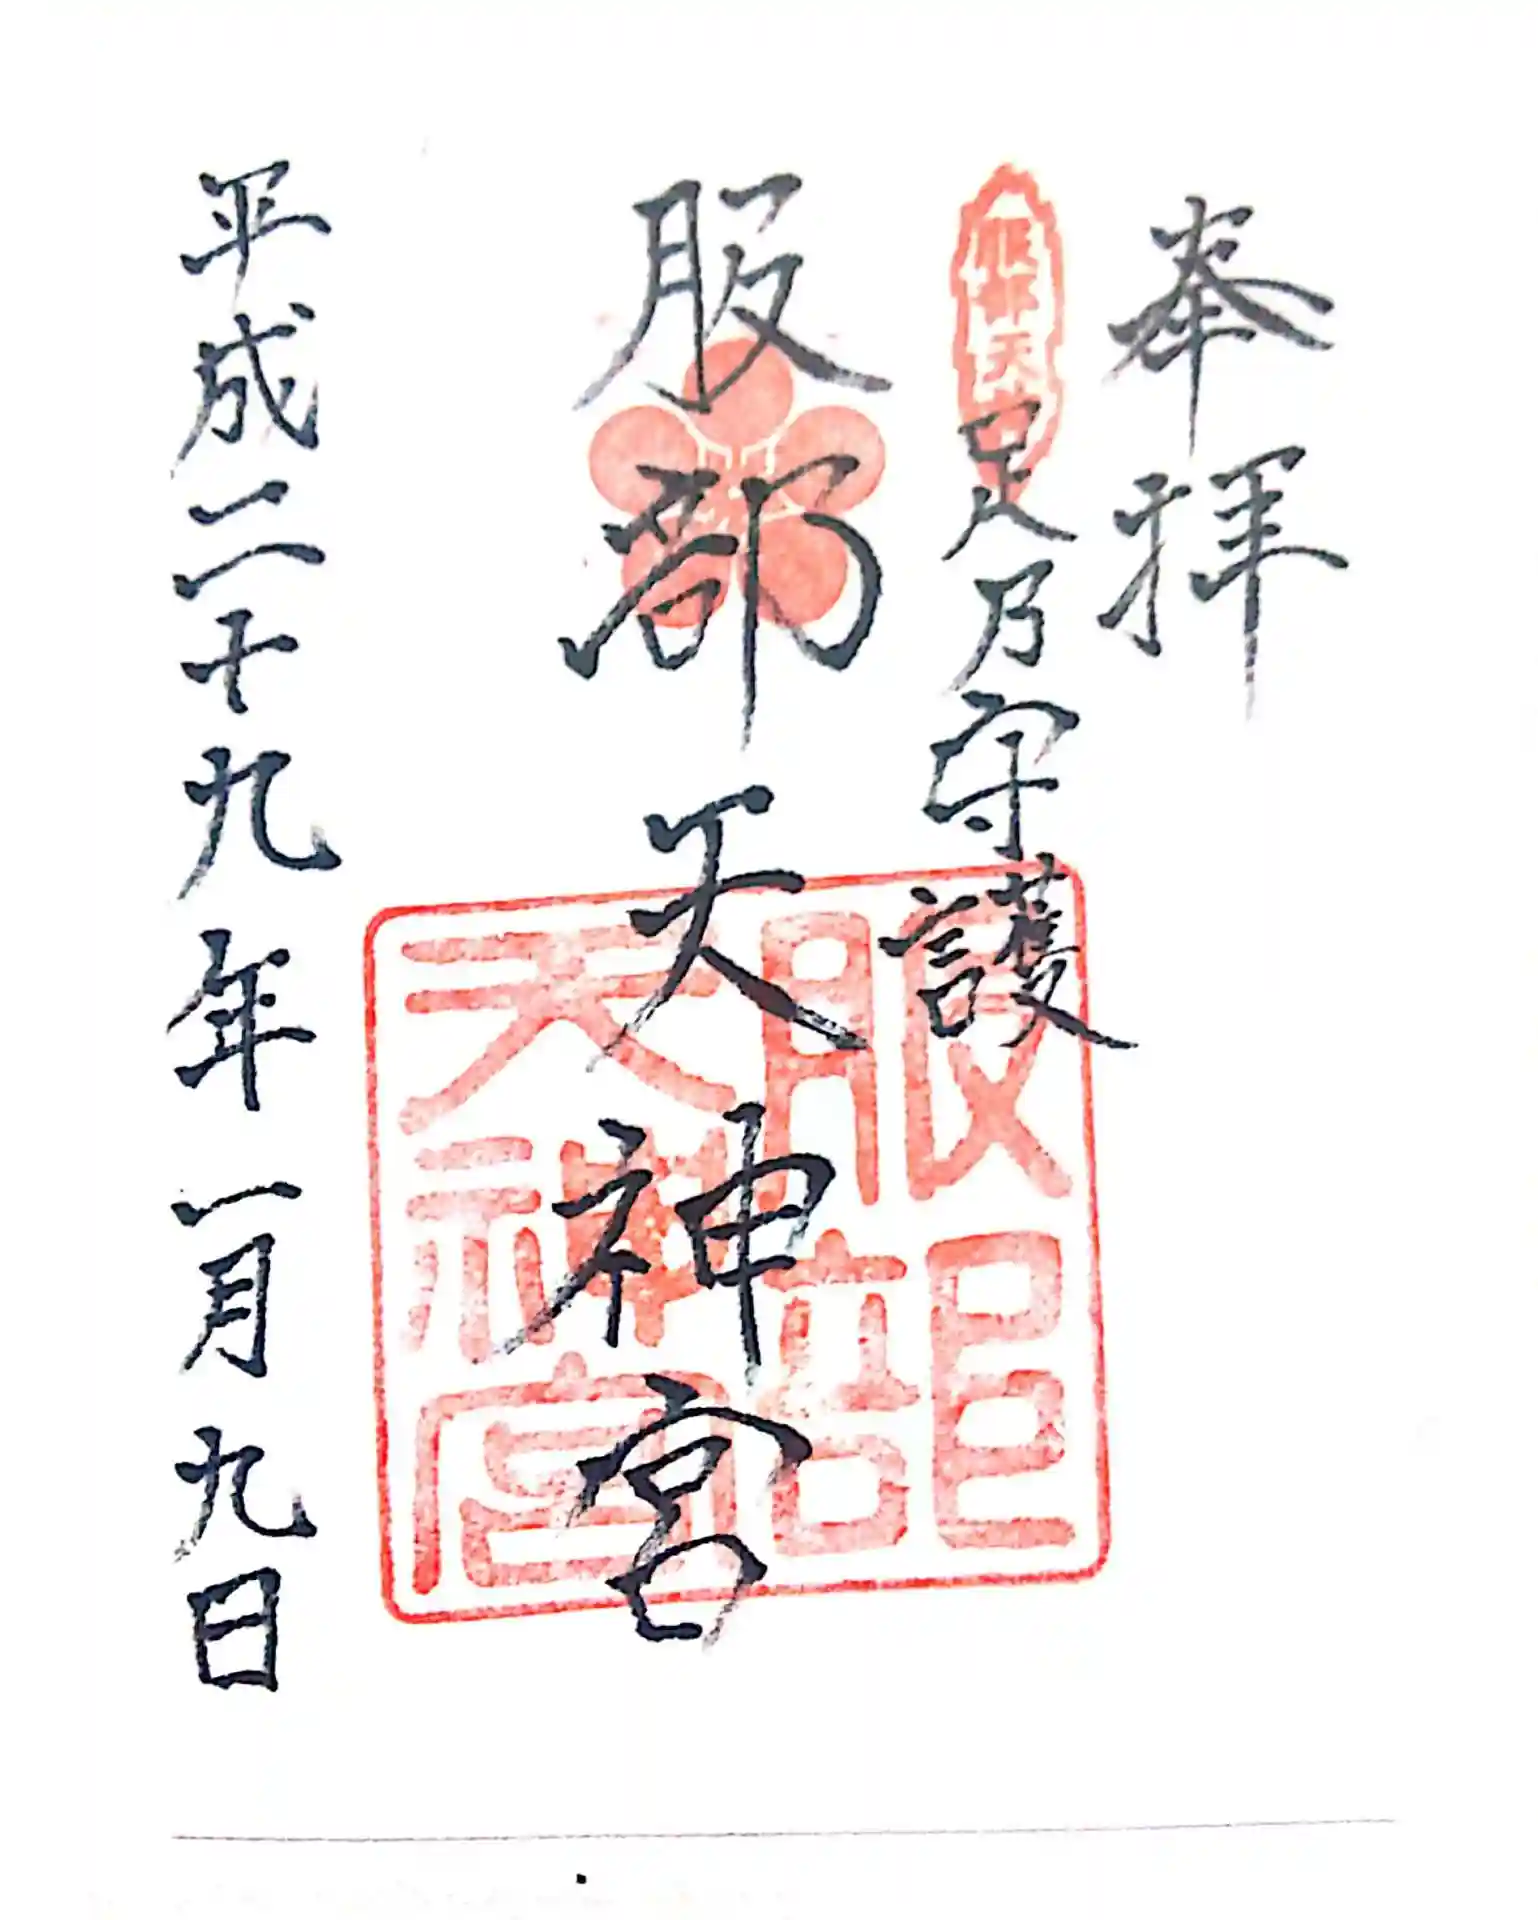 奉拝
足乃守護
服部天神宮
平成二十九年一月九日
服部
天神宮